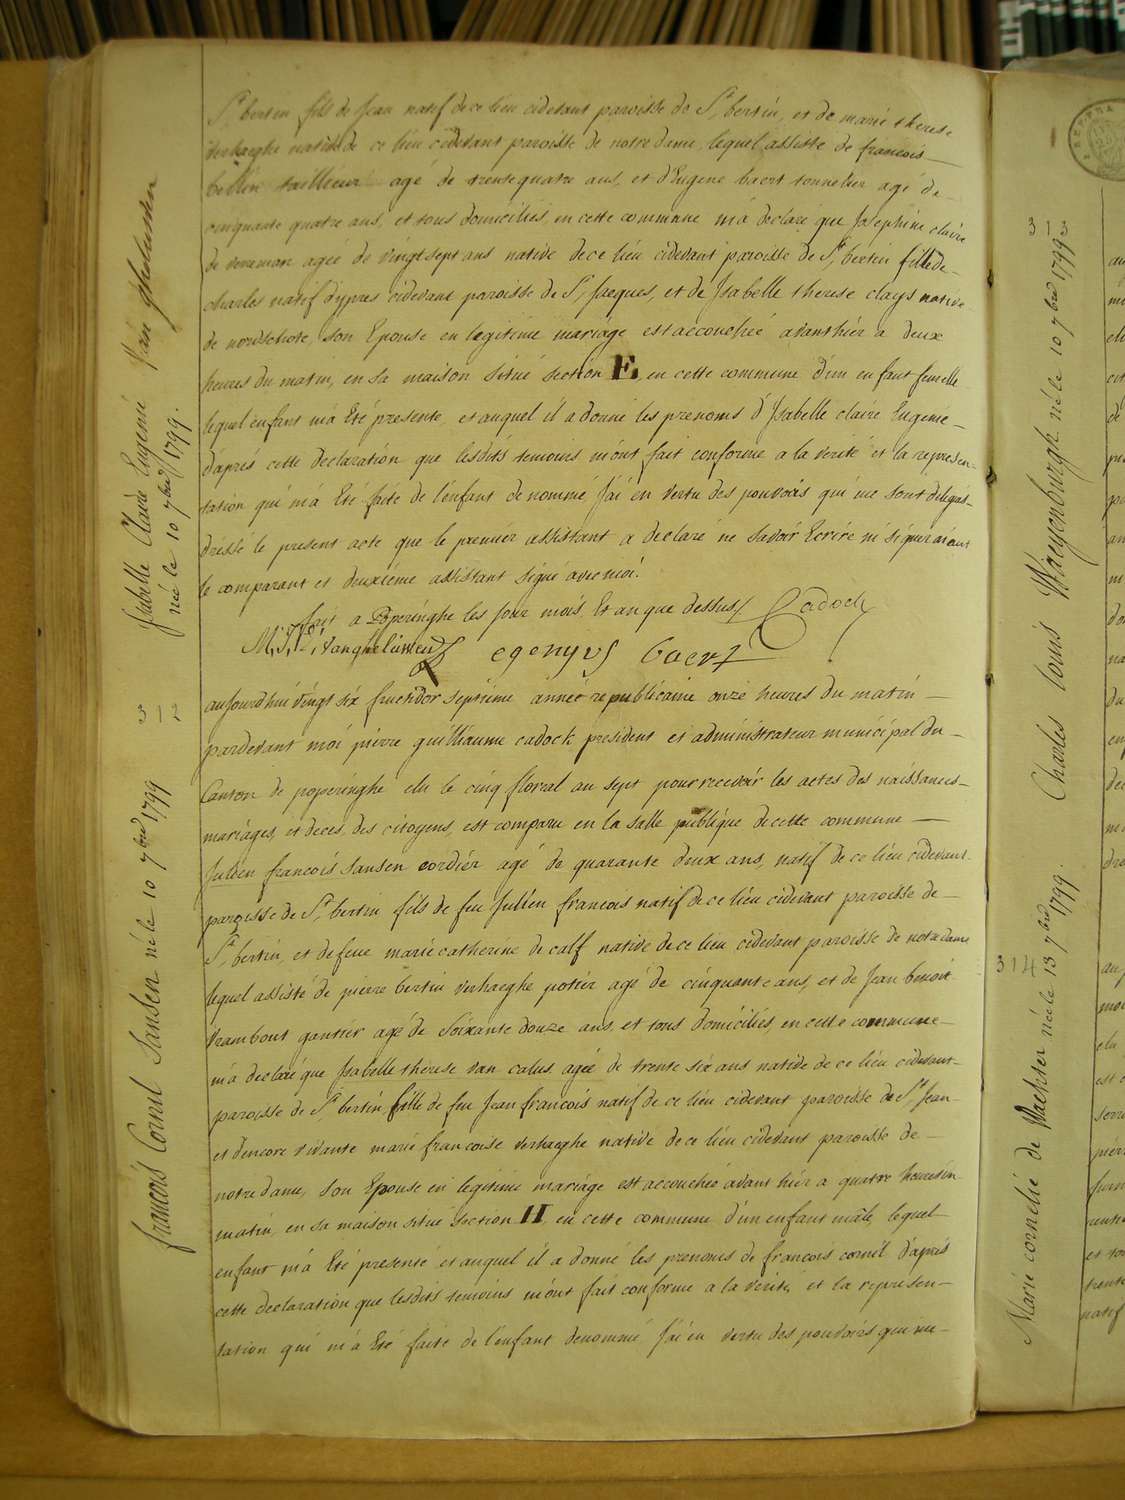 St. bertin fils de Jean natif de ce lieu cidevant paroisse de St. bertin, et de marie therese
verhaeghe native de ce lieu cidevant paroisse de notre dame, lequel assiste de francois
bellin tailleur agé de trente quatre ans, et d'Eugene baert tonnelier agé de
cinquante quatre ans, et tous domiciliés, en cette commune m'a declaré que Josephine claire
de veneman agée de vingt sept ans native de ce lieu cidevant paroisse de St. bertin fille de
charles natif d'ypres cidevant paroisse de St. Jaeques, et de Isabelle therese claijs native
de nordschote, son Epouse en legitime mariage est accouchée avanthier a deux
heures du matin, en sa maison situé section E, en cette commune d'un enfant femelle
lequel enfant m'a Eté presenté, et auquel il a donné les prenoms d'Isabelle claire Eugenie
d'aprés cette declaration que lesdits temoins m'ont fait conforme a la verité et la represen-
tation qui m'a Eté faite de l'enfant denommé J'ai en vertu des pouvoirs qui me sont delegués
dressé le present acte que le premier assistant a declaré ne savoir Ecrire ni signer aiant
le comparant et deuxiéme assistant signé avec moi.
fait a Poperinghe les Jour mois, Et an que dessus/ Cadock
egenyus baert
aujourdhui vingt six fructidor septieme année republicaine onze heures du matin
pardevant moi pierre guilliaume cadock president et administrateur municipal du
Canton de poperinghe elu le cinq floreal an sept pour recevoir les actes des naissances
mariages, et decés, des citoyens, est comparu en la salle publique de cette commune
Julien francois Sansen cordier agé de quarante deux ans, natif de ce lieu cidevant
paroisse de St. bertin fils de feu Julien francois natif de ce lieu cidevant paroisse de
St. bertin, et de feue marie catherine de calf native de ce lieu cidevant paroisse de notre dame
lequel assisté de pierre bertin verhaeghe potier agé de cinquante ans, et de Jean benoit
Trambout gantier agé de Soixante douze ans, et tous domiciliés, en cette commune
m'a declaré que Isabelle therese van calus agée de trente six ans native de ce lieu cidevant
paroisse de St. bertin fille de feu Jean francois natif de ce lieu cidevant paroisse de St. Jean
et d'encore vivante marie francoise verhaeghe native de ce lieu cidevant paroisse de
notre dame, son Epouse en legitime mariage est accouchée avant hier a quatre heures du
matin, en sa maison situé section H, en cette commune d'un enfant mâle, lequel
enfant m'a Eté presenté et auquel il a donné les prenoms de francois cornil d'aprés
cette declaration que lesdits temoins m'ont fait conforme a la verité, et la represen-
tation qui m'a Eté faite de l'enfant denommé J'ai en vertu des pouvoirs qui me
Isabelle Claire Eugenie Van ghelusten
née le 10 7bre 1799.
312
francois Cornil Sansen né le 10 7bre 1799
313
Charles louis Waeyenburgh né le 10 7bre 1799
314
Marie cornelie de Wachter née le 13 7bre 1799.